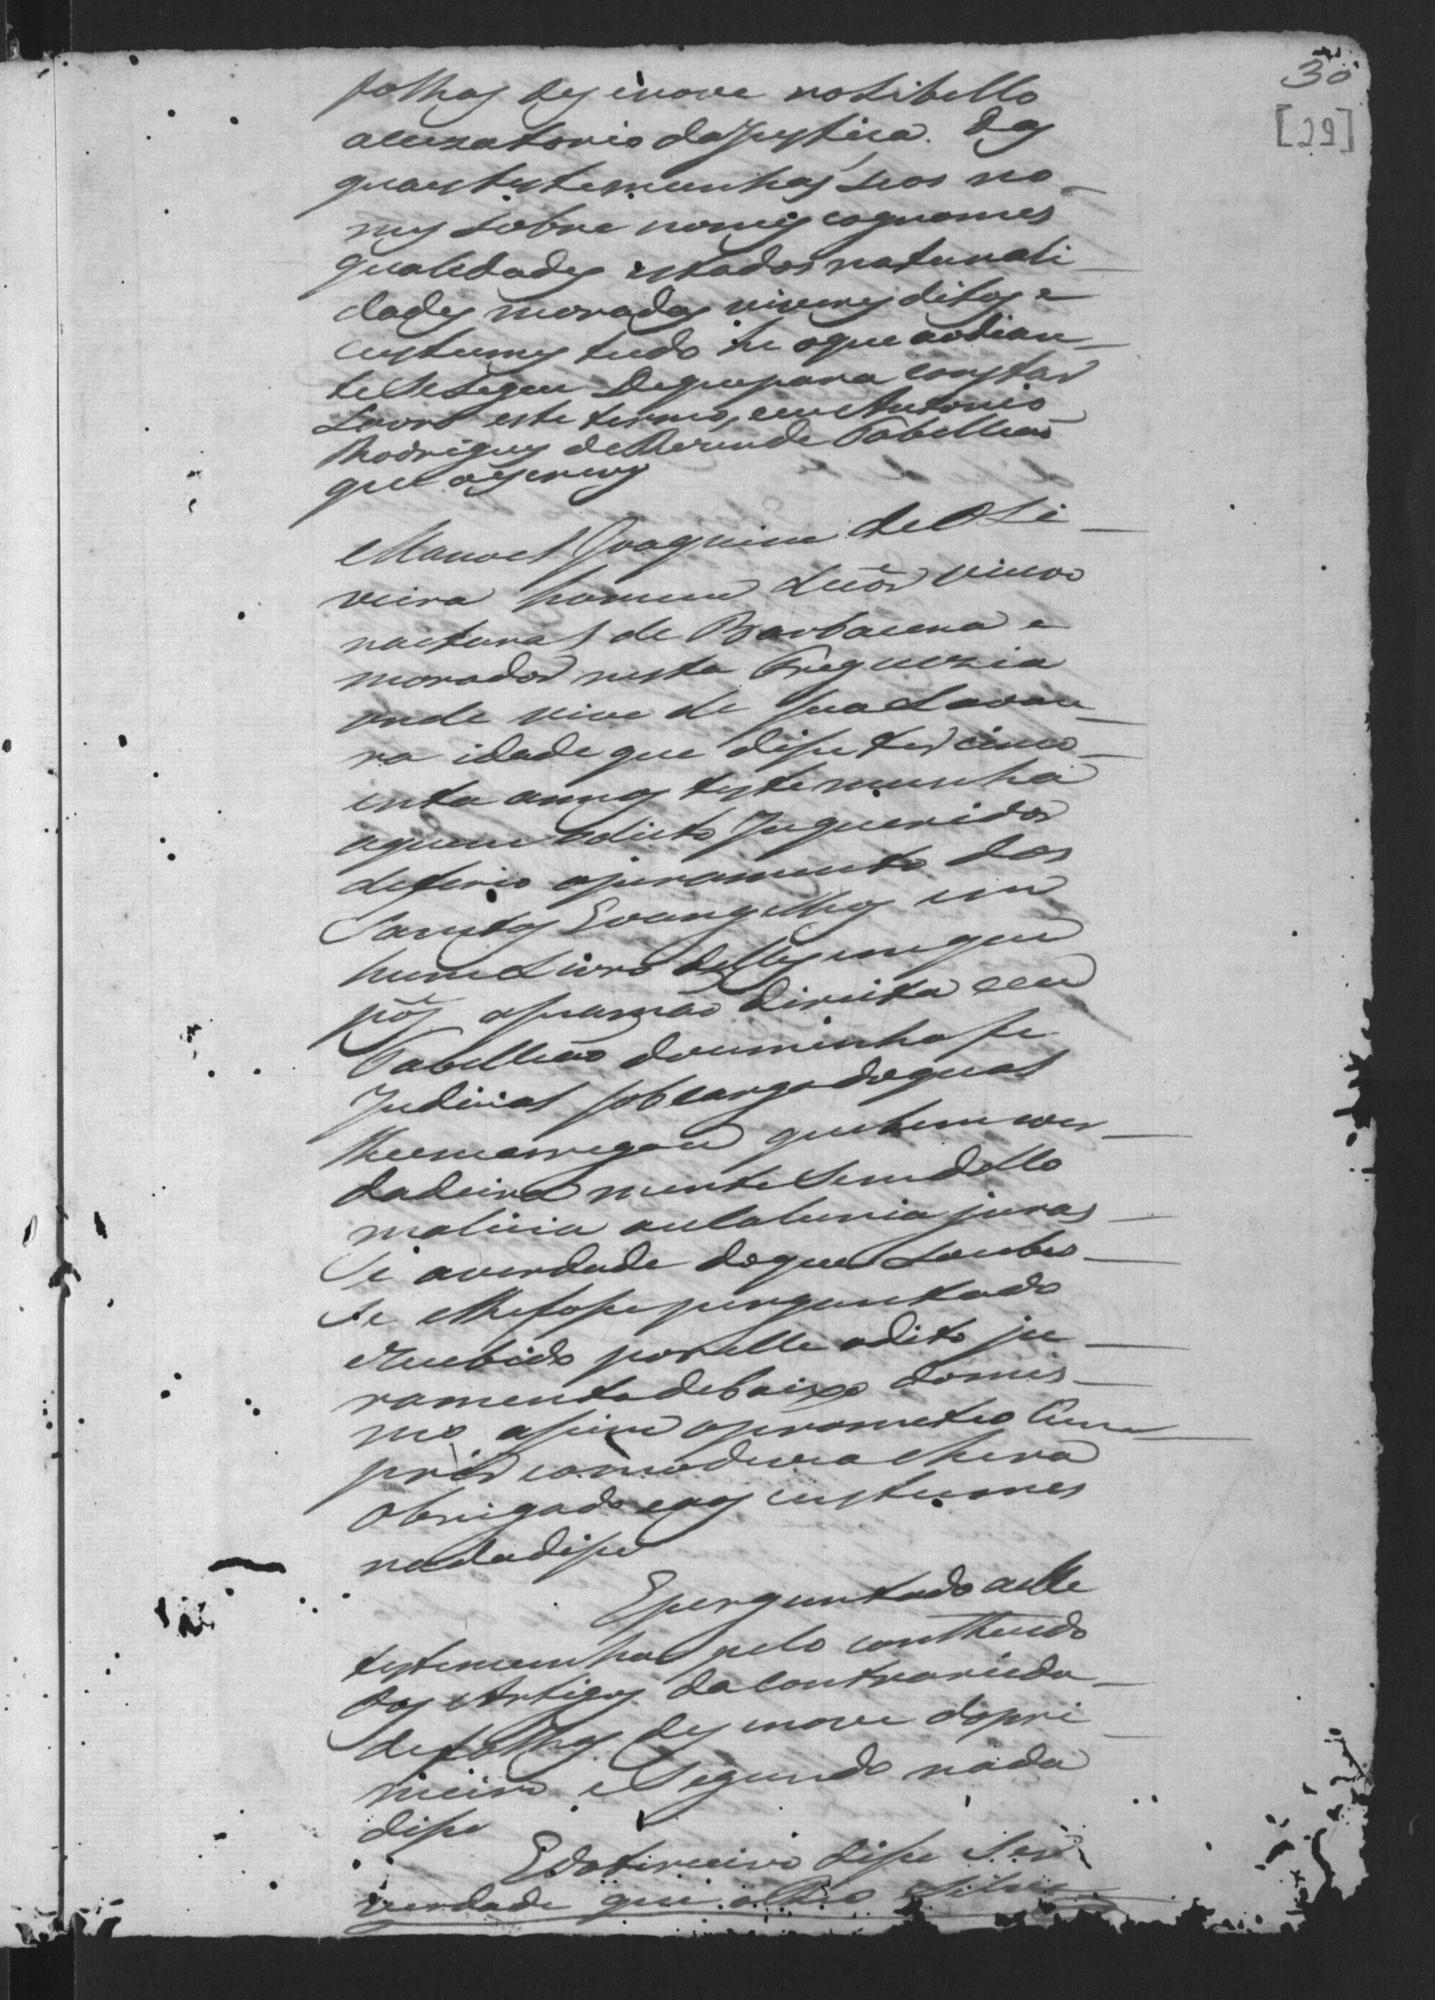 30
[29]
folhas desenove no Libello
acuzatorio da Justiça. das
quaes testemunhas seos no-
mes sobre nomes cognomes
qualidades estados naturali-
dades moradas viveres ditos e
custumes tudo he o que ao dian-
te se segue de que para constar
Lavro este termo, eu Antonio
Rodrigues de Rezende Tabelliaõ
que o escrevy
Manoel Joaquim de Oli-
veira homem viuvo
natural de Barbacena e
morador nesta Freguezia
onde vive de sua Lavou-
ra idade que disse ter cinco-
enta annos testemunha
a quem o dicto Inqueridor
deferio o juramento dos
Santos Evangelhos em
hum Livro delles em que
pôs a sua mão direita e eu
Tabelliaõ dou minha fe
Judicial sob cargo do qual
lhe emcarregou que bem ver-
dadeira mente sem dollo
malicia ou Calunia juras-
se a verdade do que soubes-
se e lhe fosse perguntado
e recebido por elle o dito ju-
ramento debaixo do mes-
mo assim o prometeo Cum-
prir como devia e hera
obrigado e aos custumes
nada disse
E perguntado a elle
testemunha pelo contheudo
dos Artigos da Contrarieda-
de folhas desenove do pri-
meiro e segundo nada
disse
E do terceiro disse ser
verdade que o Reo